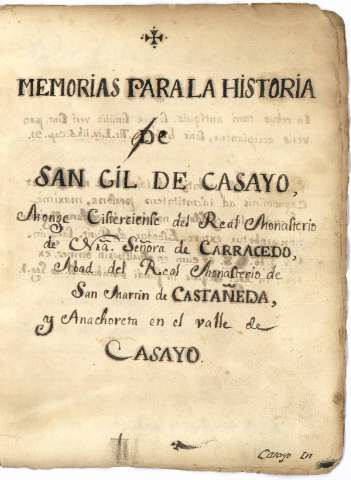 MEMORIAS PARA LA HISTORIA
De
SAN GIL DE CASAYO,
Monge Cisterciense del Real Monasterio
de Nrã. Señora de CARRACEDO,
Abad del Real Monasterio de
San Martin de CASTAÑEDA,
y Anachoreta en el valle de
CASAYO.